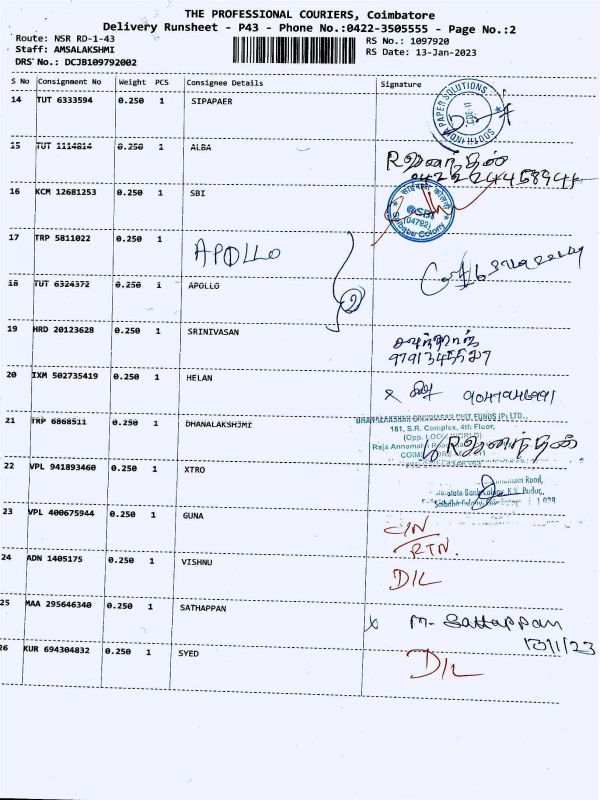 THE PROFESSIONAL COURIERS, Coimbatore
Delivery Runsheet - P43 - Phone No.:0422-3505555 - Page No.:2
Route: NSR RD-1-43 RS No.: 1097920
Staff: AMSALAKSHMI RS Date: 13-Jan-2023
DRS No.: DCJB109792002
S No Consignment No Weight PCS Consignee Details Signature
14 TUT 6333594 0.250 1 SIPAPAER
PAPER SOLUTIONS
CBE-11
15 TUT 1114814 0.250 1 ALBA
R ஆனந்தன்
16 KCM 12681253 0.250 1 SBI
SBI
(04792)
Saibaba Colony
17 TRP 5811022 0.250 1 APOLLO
18 TUT 6324372 0.250 1 APOLLO
2
19 HRD 20123628 0.250 1 SRINIVASAN
20 IXM 502735419 0.250 1 HELAN
21 TRP 6868511 0.250 1 DHANALAKSHJMI
181, S.R. Complex, 4th Floor,
R ஆனந்தன்
22 VPL 941893460 0.250 1 XTRO
23 VPL 400675944 0.250 1 GUNA
C/N
RTN.
24 ADN 1405175 0.250 1 VISHNU D/L
25 MAA 295646340 0.250 1 SATHAPPAN x M. Sathappan
13/1/23
26 KUR 694304832 0.250 1 SYED D/L